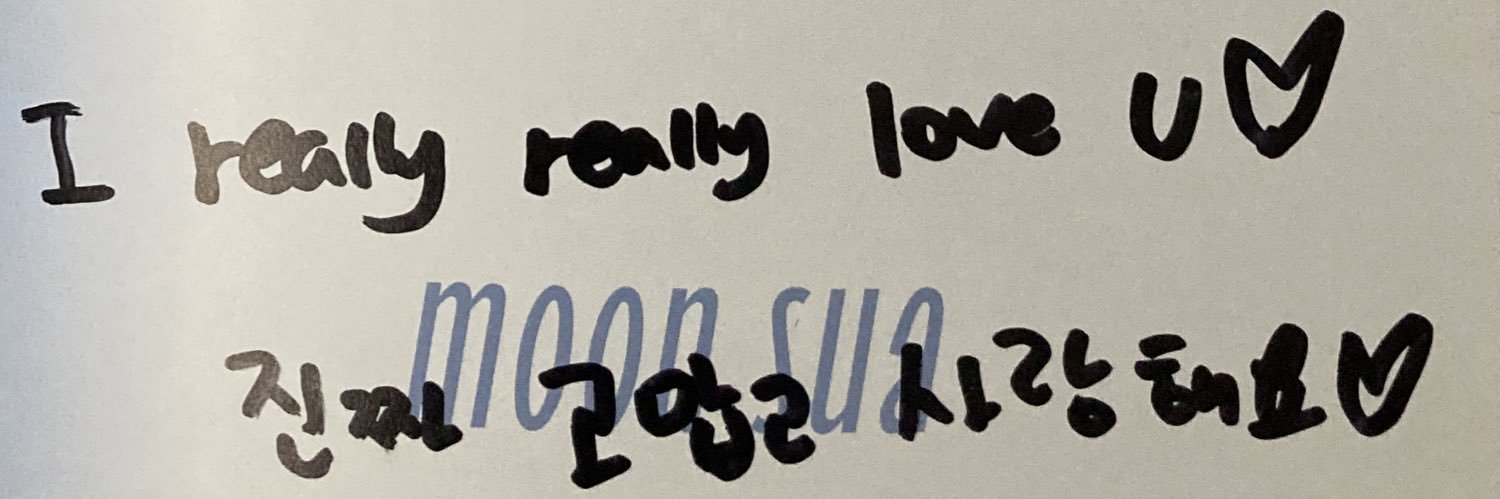 I really really love U♡
moon sua
진짜 고맙고 사랑해요♡